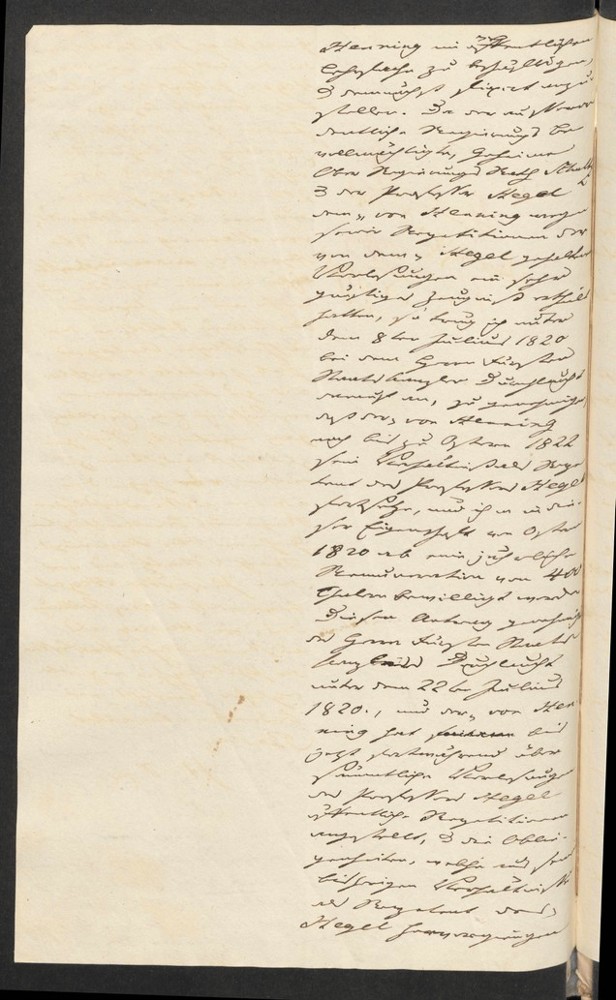 Henning im öffentlichen
Lehrfache zu beschäftigen,
& demnächst fixirt anzu-
stellen. Da der außeror-
dentliche Regierungs Be-
vollmächtigte, Geheime
Ober Regierungs Rath Schultz
& der Professor Hegel
dem von Henning wegen
seiner Repetitionen der
von dem Hegel gehaltenen
Vorlesungen ein sehr
günstiges Zeugniß ertheilt
hatten, so trug ich unter
dem 8ten Julius 1820
bei dem Herrn Fürsten
Staatskanzler Durchlaucht
darauf an, zu genehmigen,
daß der von Henning
noch bis zu Ostern 1822
sein Verhältniß als Repe-
tent des Professors Hegel
fortsetze, und ihm in die-
ser Eigenschaft von Ostern
1820 ab eine jährliche
Remuneration von 400
Thalern bewilligt werde.
Diesen Antrag genehmigte
des Herrn Fürsten Staats
kanzlers Durchlaucht
unter dem 22ten Julius
1820., und der von Hen-
ning hat bis
jetzt fortwährend über
sämmtliche Vorlesungen
des Professors Hegel
öffentliche Repetitionen
angestellt, & die Oblie-
genheiten, welche aus seinem
bisherigen Verhältniß
als Repetent des
Hegel hervorgingen